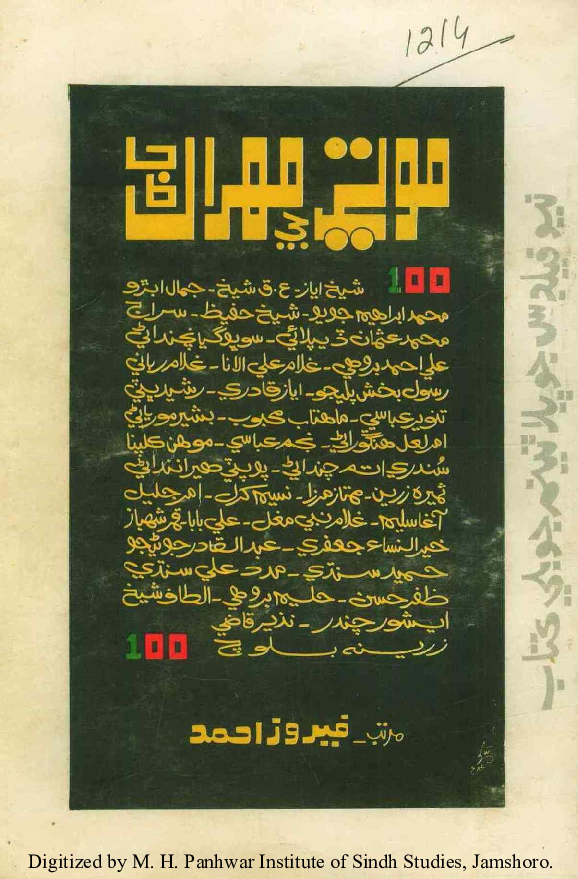 1214
موتي مهراڻ جا
100 شيخ اياز - ع. ق شيخ - جمال ابڙو
محمد ابراهيم جويو - شيخ حفيظ - سراج
محمد عثمان ڏيپلائي - سوڀو گيانچنداڻي
علي احمد بروهي - غلام علي الانا - غلام رباني
رسول بخش پليجو - اياز قادري - رشيد ڀٽي
تنوير عباسي - ماهتاب محبوب - بشير مورياڻي
امر لعل هنڱوراڻي - نجم عباسي - موهن ڪلپنا
سُندري اتمچنداڻي - پوپٽي هيراننداڻي
ثميره زرين - ممتاز مرزا - نسيم کرل - امر جليل
آغا سليم - غلام نبي مغل - علي بابا - قمر شهباز
خيرالنساء جعفري - عبدالقادر جوڻيجو
حميد سنڌي - مدد علي سنڌي
ظفر حسن - حليم بروهي - الطاف شيخ
ايشور چندر - نذير قاضي
زرينه بلوچ 100
مرتب - فيروز احمد
نيو فيلڊس جو پلاٽينم جوبلي ڪتاب
Digitized by M. H. Panhwar Institute of Sindh Studies, Jamshoro.